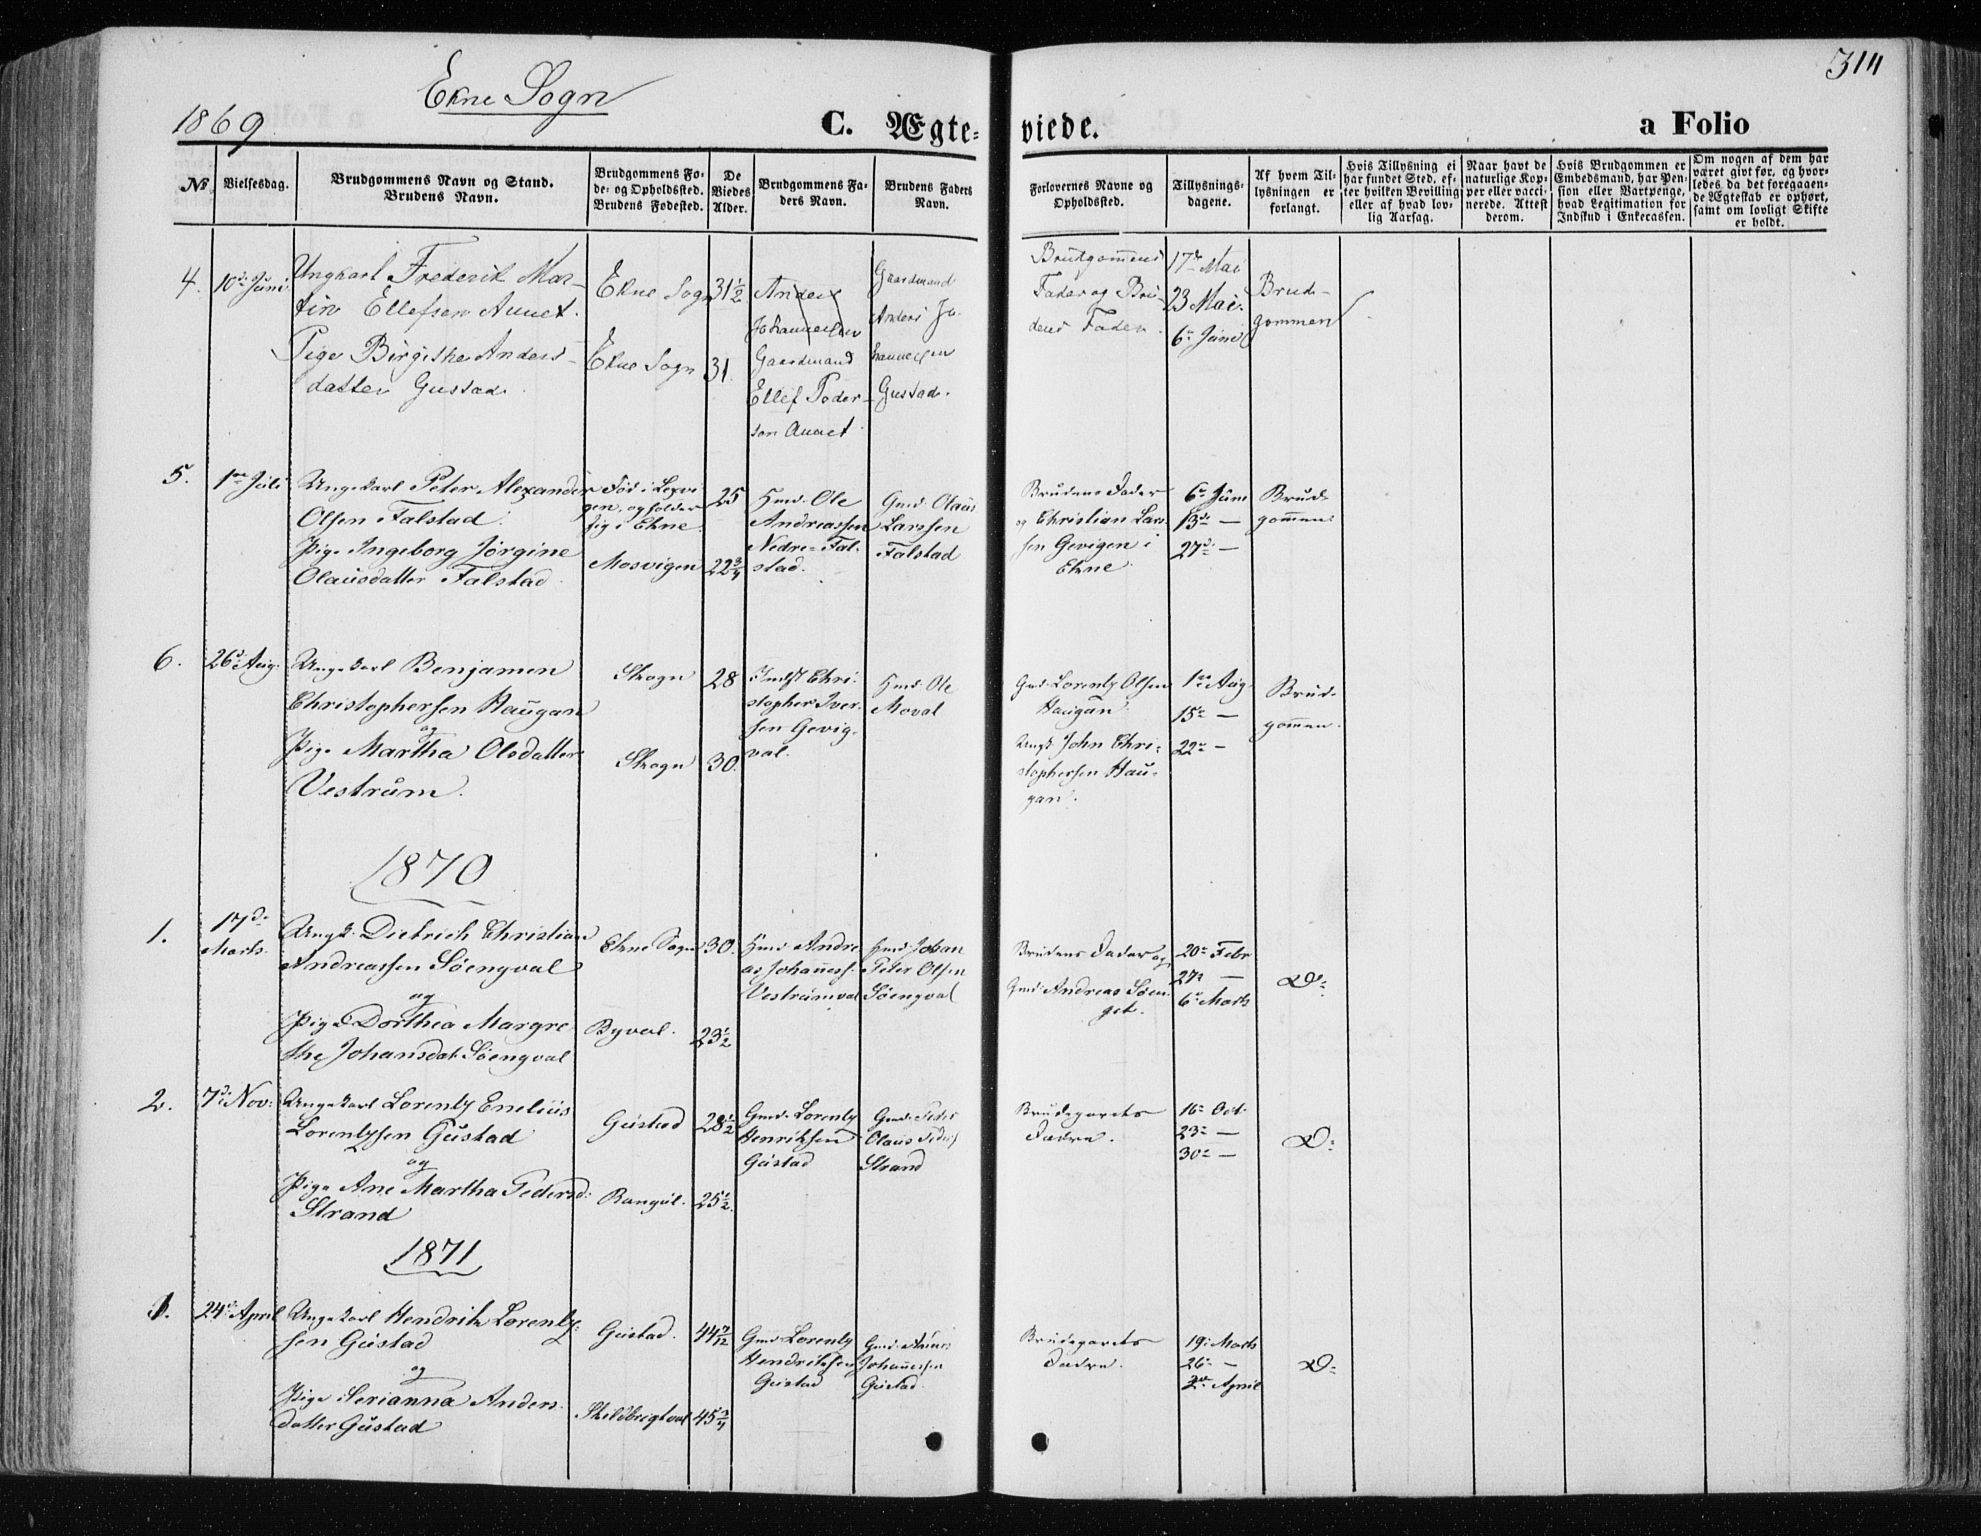 314
Ekne Sogn
1869
C. Ægte-
viede.
a Folio
№
Vielsesdag.
Brudgommens Navn og Stand.
Brudens Navn.
Brudgommens Fø-
de- og Opholdssted.
Brudens Fødested.
De
Viedes
Alder.
Brudgommens Fa-
ders Navn.
Brudens Faders
Navn.
Forlovernes Navne og
Opholdssted.
Tillysnings-
dagene.
Af hvem Til-
lysningen er
forlangt.
Hvis Tillysning ei
har fundet Sted, ef-
ter hvilken Bevilling
eller af hvad lov-
lig Aarsag.
Naar havt de
naturlige Kop-
per eller vacci-
nerede. Attest
derom.
Hvis Brudgommen er
Embedsmand, har Pen-
sion eller Vartpenge,
hvad Legitimation for
Indskud i Enkecassen.
Om nogen af dem har
været gift før, og hvor-
ledes da det foregaaen-
de Ægteskab er ophørt,
samt om lovligt Skifte
er holdt.
4.
10de Juni
Ungkarl Frederik Mar-
tin Ellefsen Aunet.
Pige Birgithe Anders-
datter Gustad.
Ekne Sogn
Ekne Sogn
31½
31.
Anders
Johannessen
Gaardmand
Ellef Peder-
sen Aunet
Gaardmand
Anders Jo-
hannesen
Gustad.
Brudgommens
Fader og Bru-
dens Fader.
17de Mai
23 Mai.
6te Juni
Brud-
gommen
5.
1ste Juli
Ungekarl Peter Alexander
Olsen Falstad.
Pige Ingeborg Jørgine
Olausdatter Falstad.
Fød i Lexvi
gen, og holder
sig i Ekne.
Mosvigen
25
22¾
Hmd. Ole
Andreassen
Nedre-Fal-
stad.
Gmd. Olaus
Larssen
Falstad
Brudens Fader
og Christian Lar-
sen Gevigen i
Ekne.
6te Juni
13de —
27de —
Brud-
gommen
6.
26de Aug.
Ungekarl Benjamin
Christophersen Haugan
og
Pige Martha Olsdatter
Vestrum.
Skogn
Skogn
28
30.
Indst Chri-
stopher Iver-
sen Gevig-
val.
Hmd. Ole
Moval
Gmd. Lorentz Olsen
Haugan
Ungk. John Chri-
stophersen Hau-
gan.
1ste Aug.
15de —
22de —
Brud-
gommen.
1870
1.
17de
Marts.
Ungk. Dietrich Christian
Andreassen Söengval
og
Pige Dorthea Margre
the Johansdat. Söengval
Ekne Sogn
Byval.
30.
23½
Hmd. Andre
as Johanness.
Vestrumval
Hmd. Johan
Peter Olsen
Söengval
Brudens Fader og
Gmd. Andreas Söen-
get.
20de Febr
27de —
6te Marts
Do
2.
7de Nov:
Ungekarl Lorentz Enelius
Lorentzsen Gustad
og
Pige Ane Martha Pedersd:
Strand
Gustad
28½
25½.
Gmd. Lorentz
Henriksen
Gustad
Gmd. Peder
Olaus Peders
Strand
Brudeparets
Fædre.
16de Oct.
23de —
30de —
Do
1871
1.
24de April
Ungekarl Hendrik Lorentz-
sen Gustad
og
Pige Serianna Anders
datter Gustad
Gustad.
44 7/12
45¾
Gmd. Lorentz
Hendriksen
Gustad
Johannessen
Gustad.
Brudeparets
Fædre.
19de Marts
26de —
2den April
Do